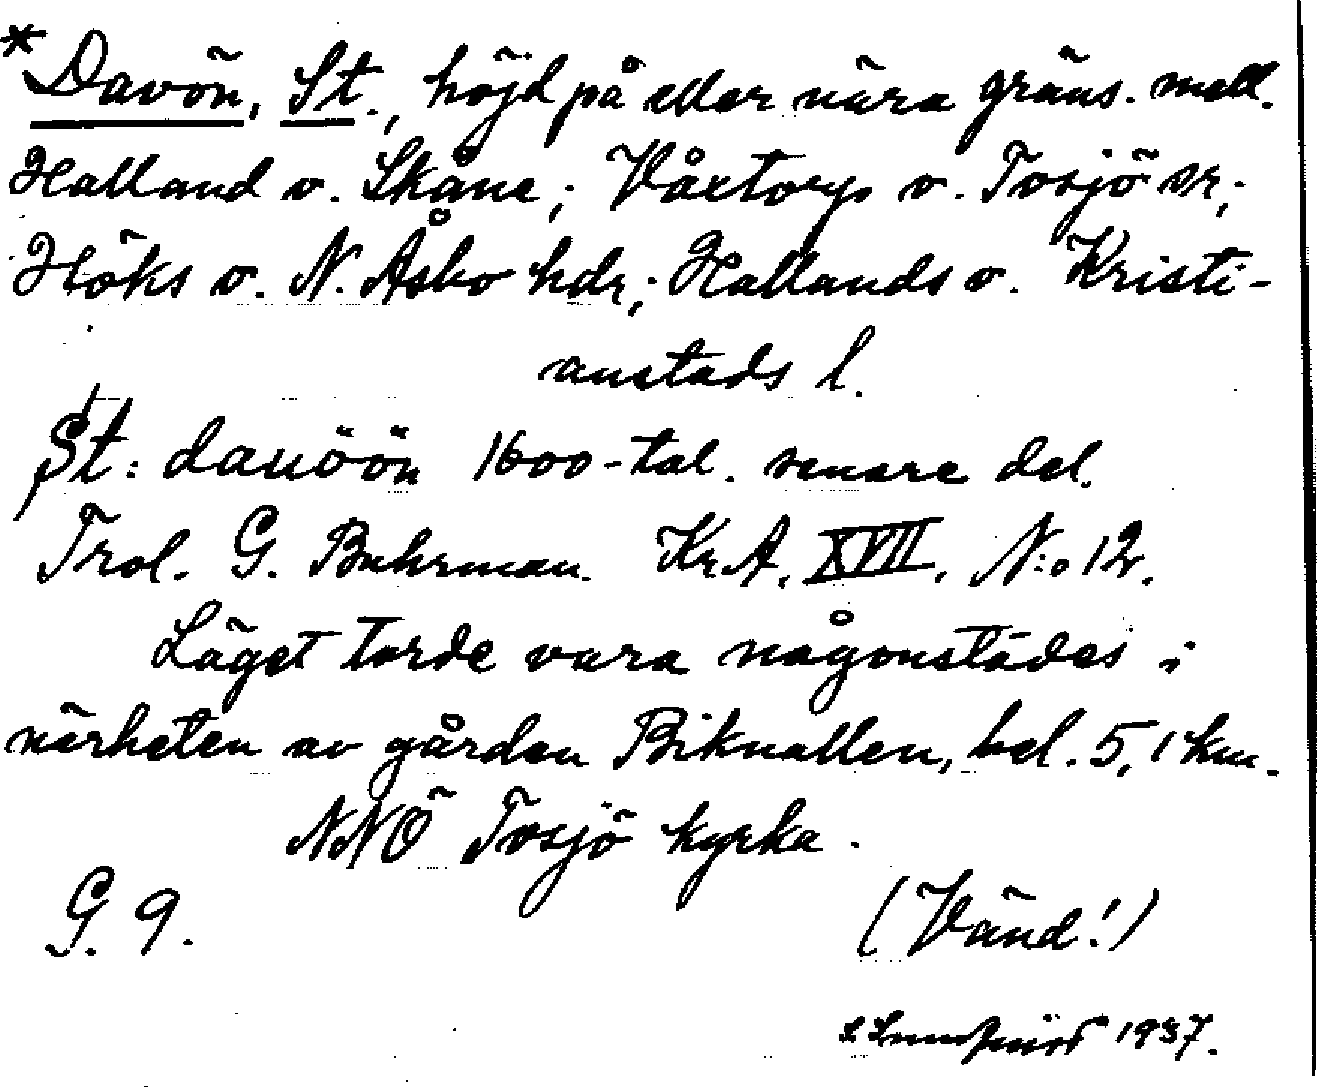 *Davön, St., höjd på eller nära gräns. mell.
Halland o. Skåne; Våxtorps o. Tosjö sr;
Höks o. N. Åsbo hdr; Hallands o. Kristi-
anstads l.
St: dauöön 1600-tal. senare del.
Trol. G. Buhrman. Kr.A. XVII, N:o 12.
Läget torde vara någonstädes i
närheten av gården Biknallen, bel. 5,1 km.
NNÖ Tosjö kyrka.
G. 9.
(Vänd!)
1937.